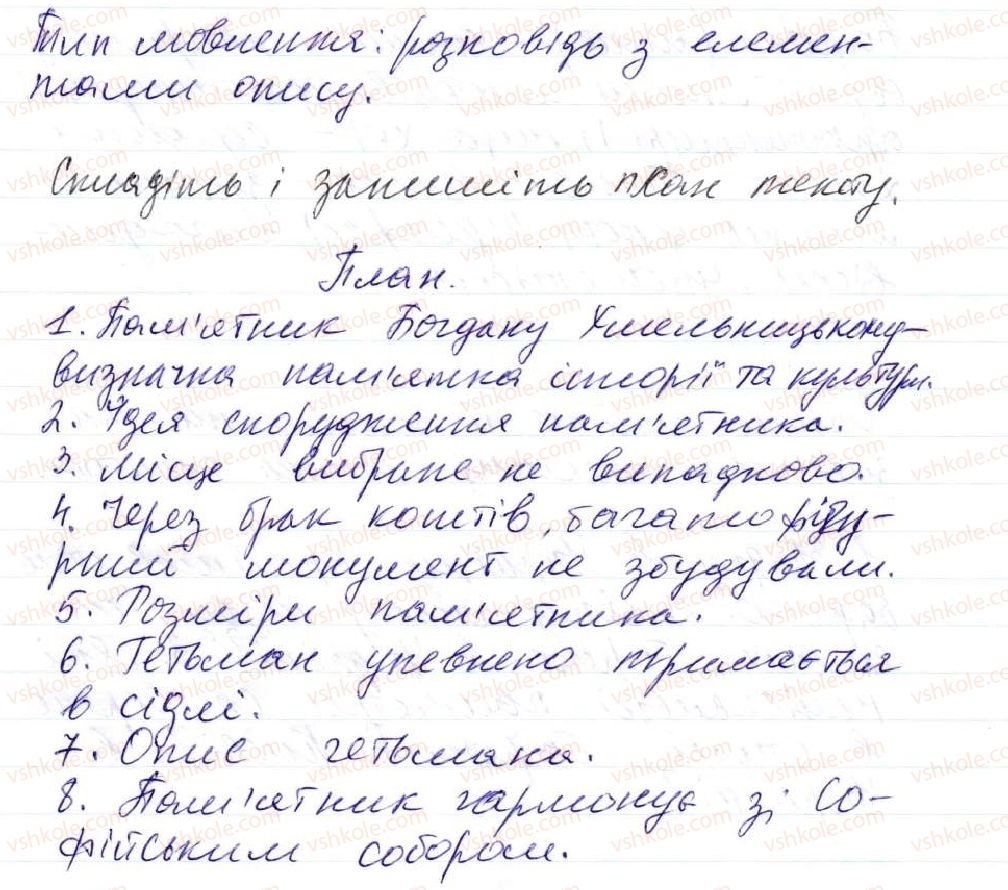 Тип мовлення: розповідь з елемен-
тами опису.
Складіть і запишіть план тексту.
План.
1. Пам'ятник Богдану Хмельницькому-
визначна пам'ятка історії та культури.
2. Ідея спорудження пам'ятника.
3. Місце вибране не випадково.
4. Через брак коштів багатофігу-
рний монумент не збудували.
5. Розміри пам'ятника.
6. Гетьман упевнено тримається
в сідлі.
7. Опис гетьмана.
8. Пам'ятник гармонує зі Со-
фійським собором.